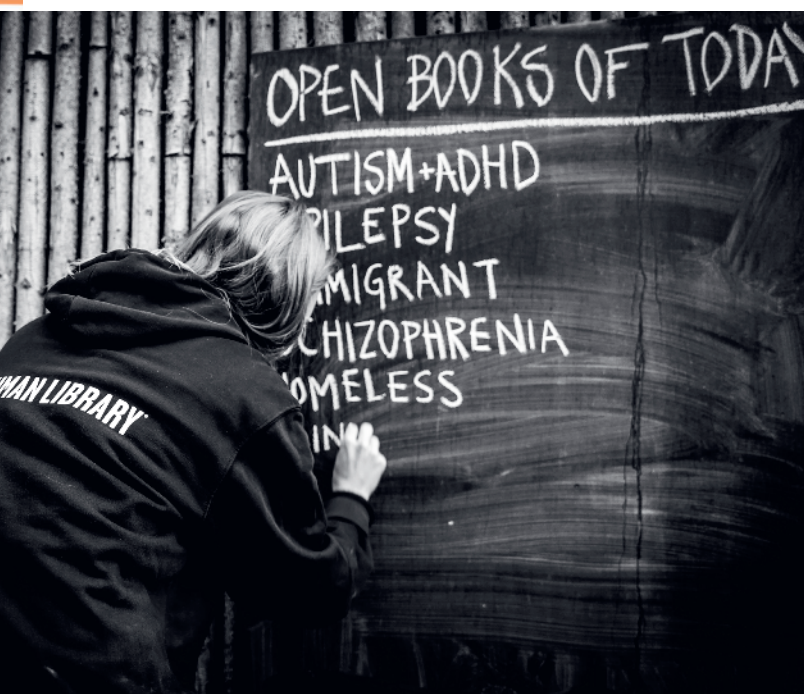 OPEN BOOKS OF TODAY
AUTISM+ADHD
PILEPSY
MIGRANT
CHIZOPHRENIA
OMELESS
IN
MAN LIBRARY